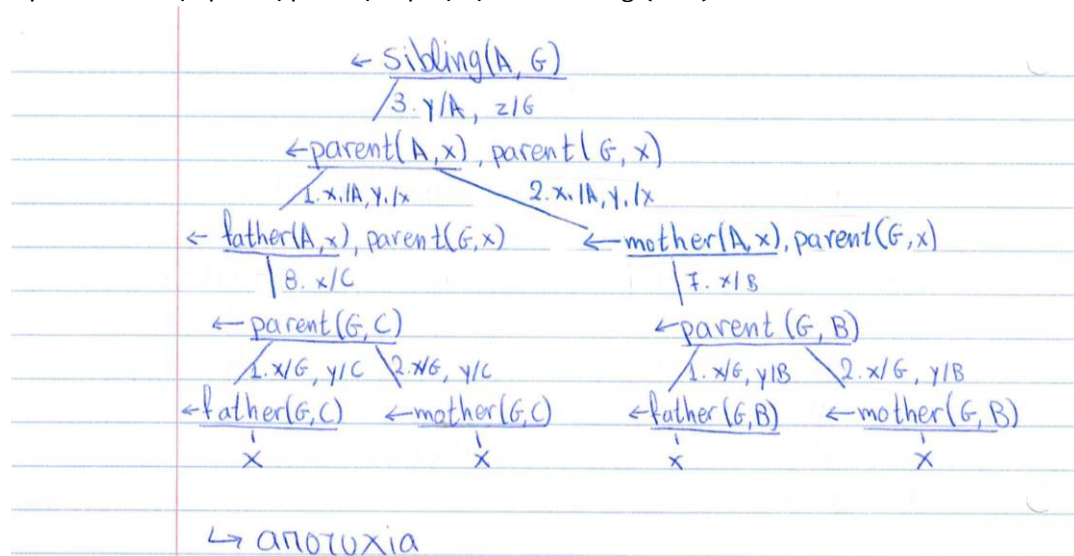 ← sibling(A, G)
3. y/A, z/G
← parent(A, x), parent(G, x)
1. x₁/A, y₁/x 2. x₁/A, y₁/x
← father(A, x), parent(G, x) ← mother(A, x), parent(G, x)
8. x/C 7. x/B
← parent(G, C) ← parent(G, B)
1. x/G, y/C 2. x/G, y/C 1. x/G, y/B 2. x/G, y/B
← father(G, C) ← mother(G, C) ← father(G, B) ← mother(G, B)
x x x x
↳ αποτυχία